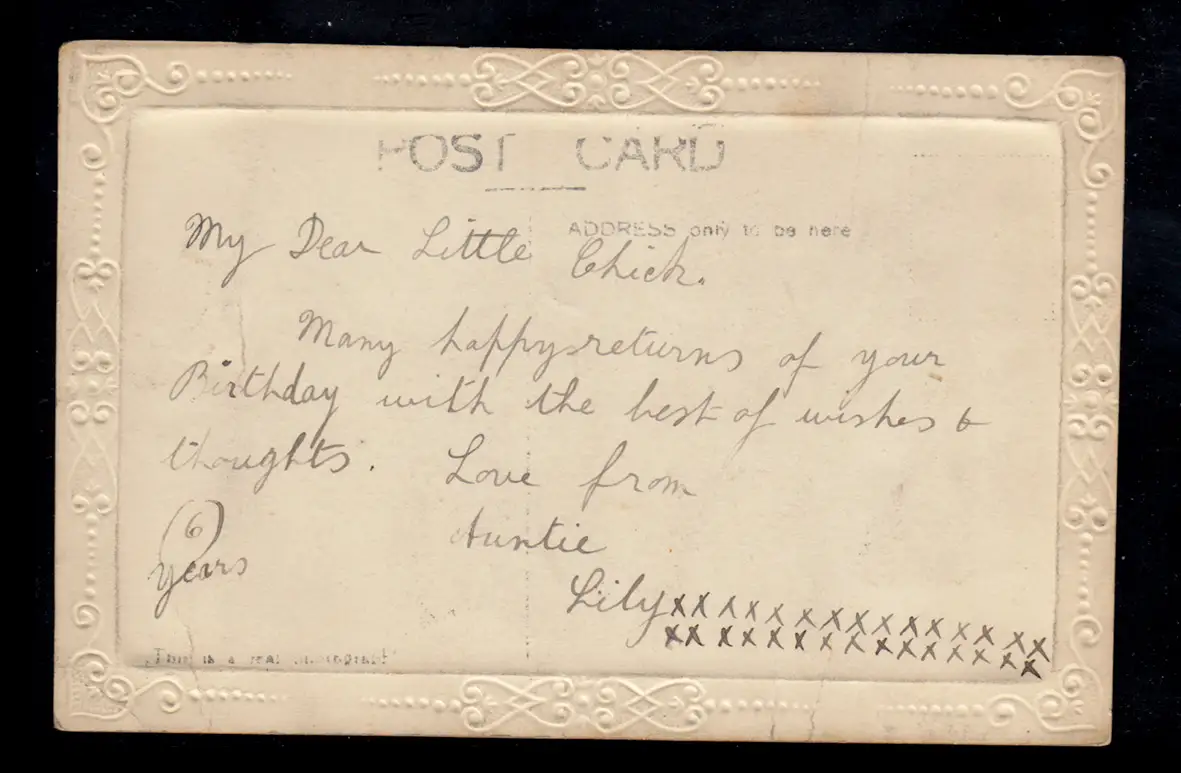 POST CARD
ADDRESS only to be here
My Dear Little Chick.
Many happy returns of your
Birthday with the best of wishes &
thoughts. Love from
(6) Auntie
years
Lily x x x x x x x x x x x x x x x
x x x x x x x x x x x x x x x
"This is a real photograph"